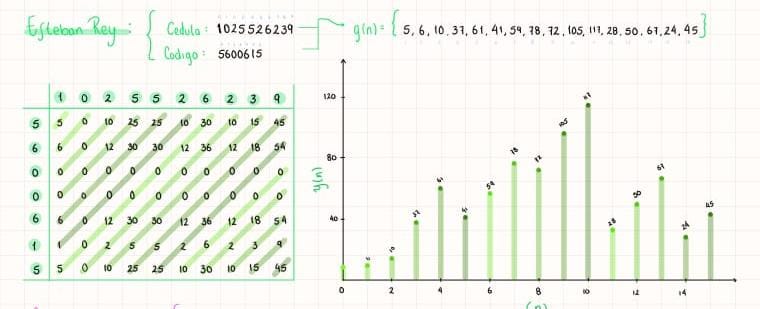 Esteban Rey: { Cedula: 1025526239 g(n) = { 5, 6, 10, 37, 61, 41, 59, 78, 72, 105, 117, 28, 50, 67, 24, 45 }
Codigo: 5600615
1 0 2 5 5 2 6 2 3 9
5 5 0 10 25 25 10 30 10 15 45
6 6 0 12 30 30 12 36 12 18 54
0 0 0 0 0 0 0 0 0 0 0
0 0 0 0 0 0 0 0 0 0 0
6 6 0 12 30 30 12 36 12 18 54
1 1 0 2 5 5 2 6 2 3 9
5 5 0 10 25 25 10 30 10 15 45
120
80
40
y(n)
6 10 37 61 41 59 78 72 105 28 50 67 24 45
0 2 4 6 8 10 12 14
(n)